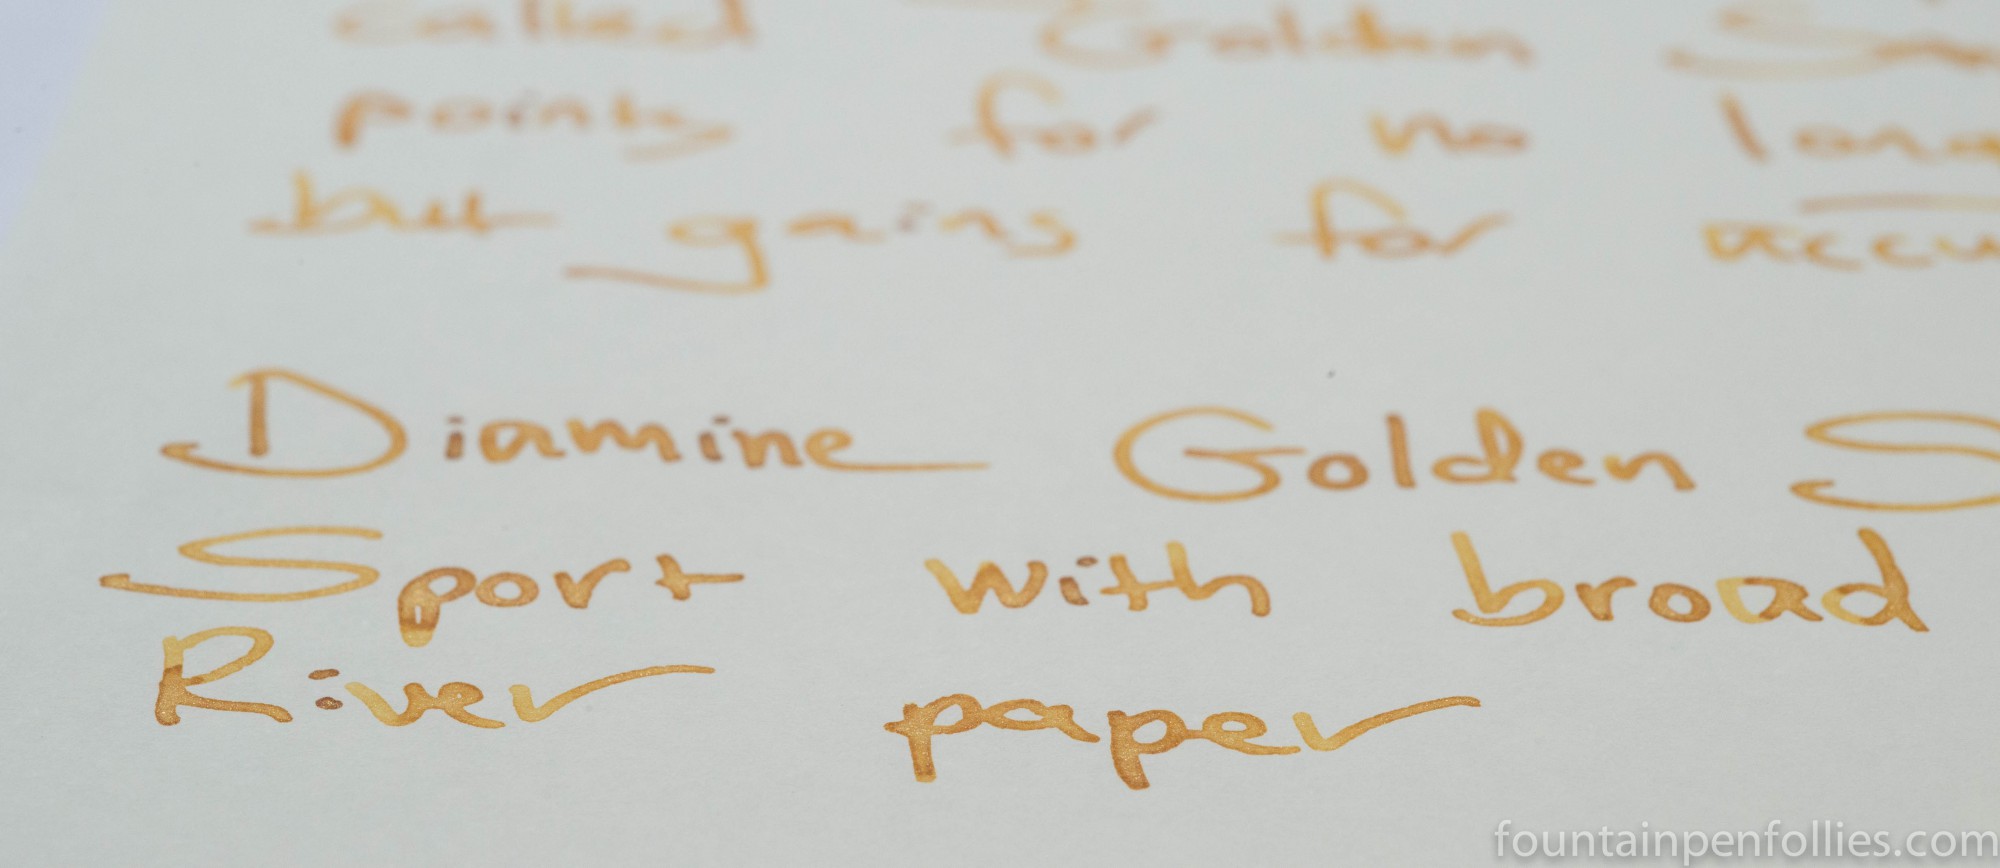 called Golden
points for no
but gains for
Diamine Golden S
Sport with broad
River paper
fountainpenfollies.com